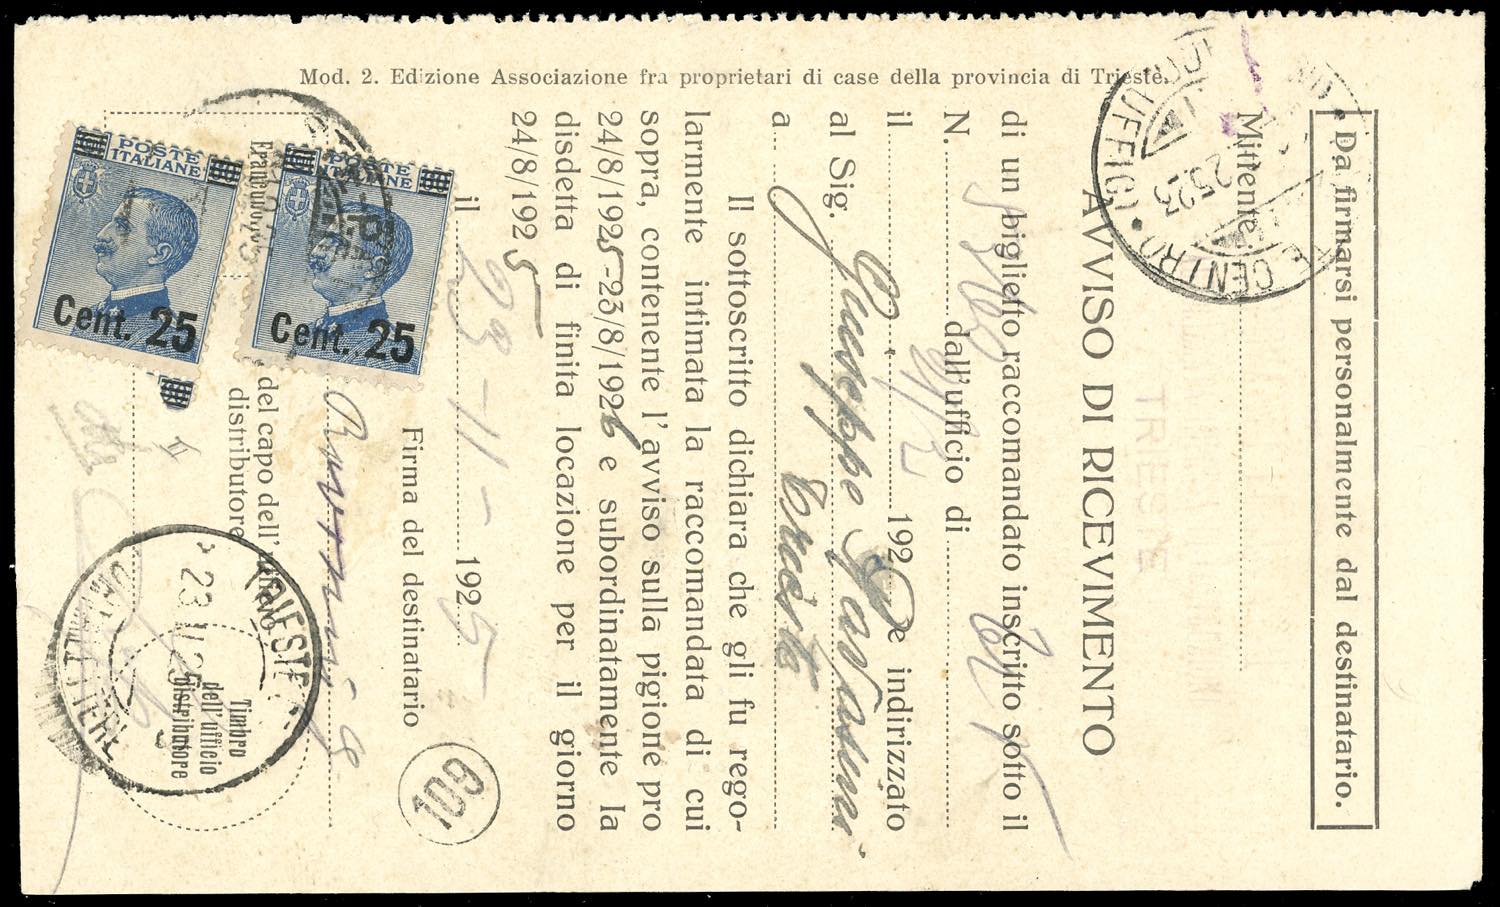 Mod. 2. Edizione Associazione fra proprietari di case della provincia di Trieste.
Da firmarsi personalmente dal destinatario.
Mittente:
TRIESTE
AVVISO DI RICEVIMENTO
di un biglietto raccomandato inscritto sotto il
N. dall'ufficio di
il 192 e indirizzato
al Sig. Giuseppe
a Trieste
Il sottoscritto dichiara che gli fu rego-
larmente intimata la raccomandata di cui
sopra, contenente l'avviso sulla pigione pro
24/8/1925-23/8/1926 e subordinatamente la
disdetta di finita locazione per il giorno
24/8/1925
il 23-11- 1925
Firma del destinatario
109
del capo dell'
distributore
Timbro
dell'ufficio
distributore
TRIESTE
23.11.25
LETTERE
POSTE
ITALIANE
Cent. 25
POSTE
ITALIANE
Cent. 25
CENTRO
UFFICI